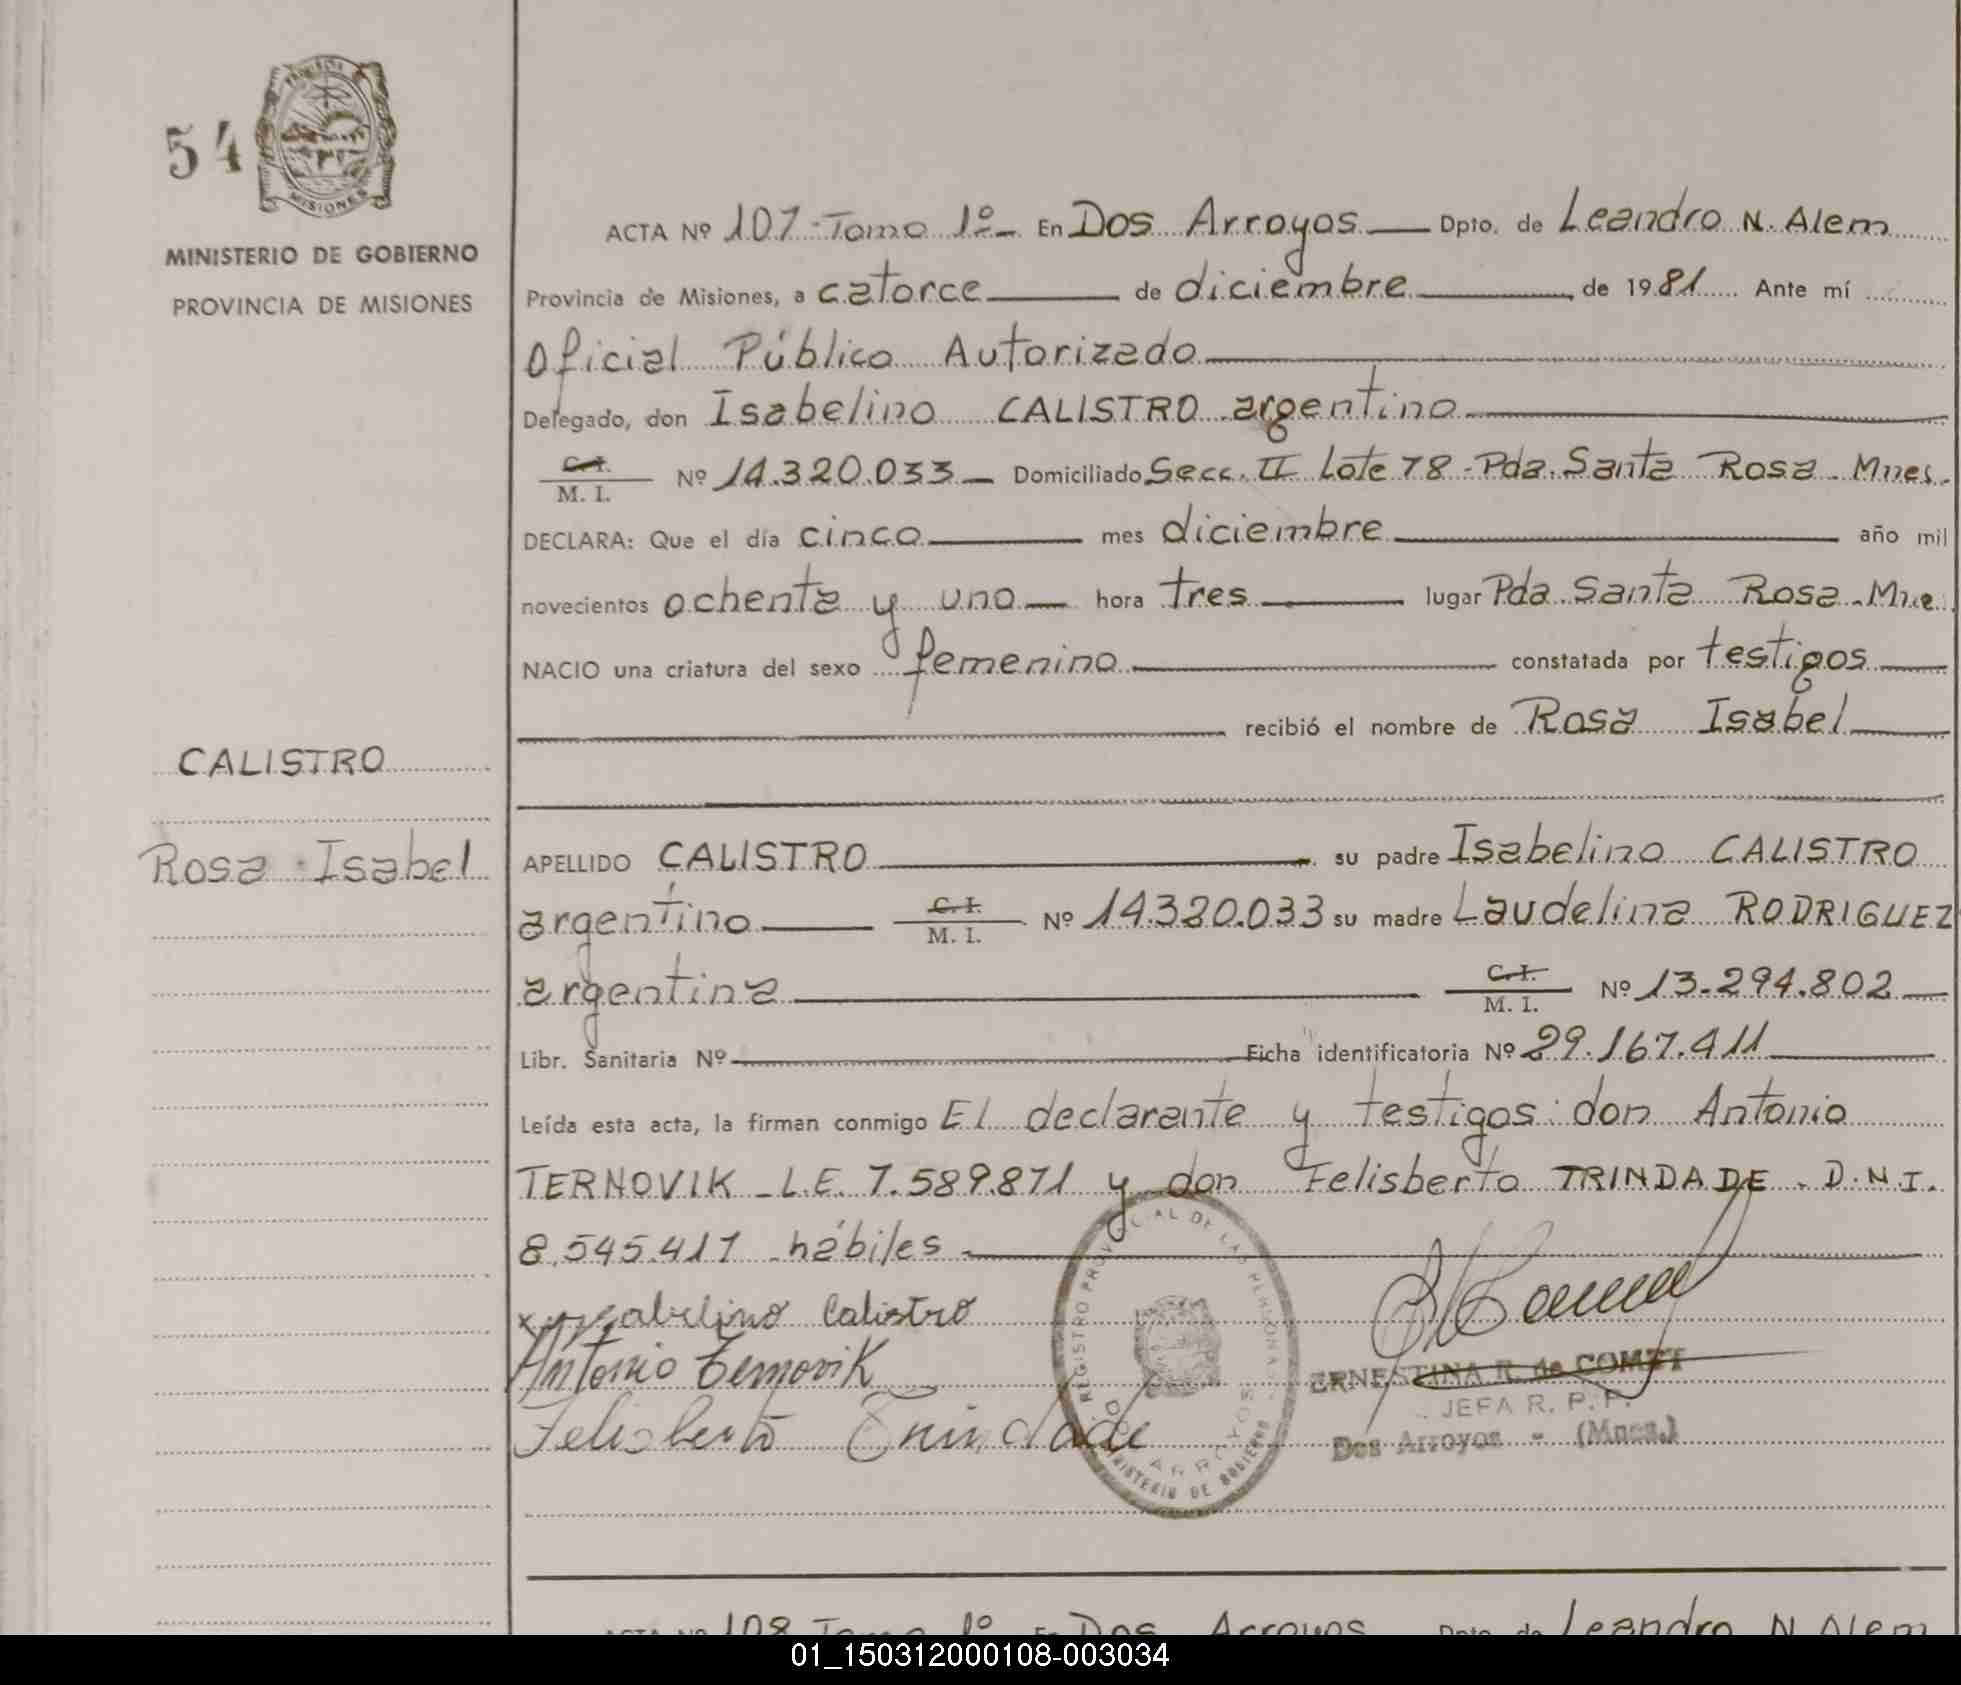 54
PROVINCIA
MISIONES
MINISTERIO DE GOBIERNO
PROVINCIA DE MISIONES
CALISTRO
Rosa Isabel
ACTA Nº 107-Tomo 1º- En Dos Arroyos Dpto. de Leandro N. Alem
Provincia de Misiones, a catorce de diciembre de 1981 Ante mí
Oficial Público Autorizado
Delegado, don Isabelino CALISTRO argentino
C.I. M. I. Nº 14.320.033 Domiciliado Secc. II Lote 78-Pda. Santa Rosa-Mnes.
DECLARA: Que el día cinco mes diciembre año mil
novecientos ochenta y uno hora tres lugar Pda Santa Rosa-Mne
NACIO una criatura del sexo femenino constatada por testigos
recibió el nombre de Rosa Isabel
APELLIDO CALISTRO su padre Isabelino CALISTRO
argentino C.I. M. I. Nº 14.320.033 su madre Laudelina RODRIGUEZ
argentina C.I. M. I. Nº 13.294.802
Libr. Sanitaria Nº Ficha identificatoria Nº 29.167.411
Leída esta acta, la firman conmigo El declarante y testigos: don Antonio
TERNOVIK - L.E. 7.589.871 y don Felisberto TRINDADE. D.N.I.
8.545.417 hábiles
x Isabelino Calistro
Antonio Ternovik
Felisberto Trindade
REGISTRO PROVINCIAL DE LAS PERSONAS
DOS ARROYOS
MINISTERIO DE GOBIERNO
ERNESTINA R. de COMET
JEFA R. P. P.
Dos Arroyos - (Mnes.)
ACTA Nº 108 Tomo 1º En Dos Arroyos Dpto. de Leandro N Alem
01_150312000108-003034